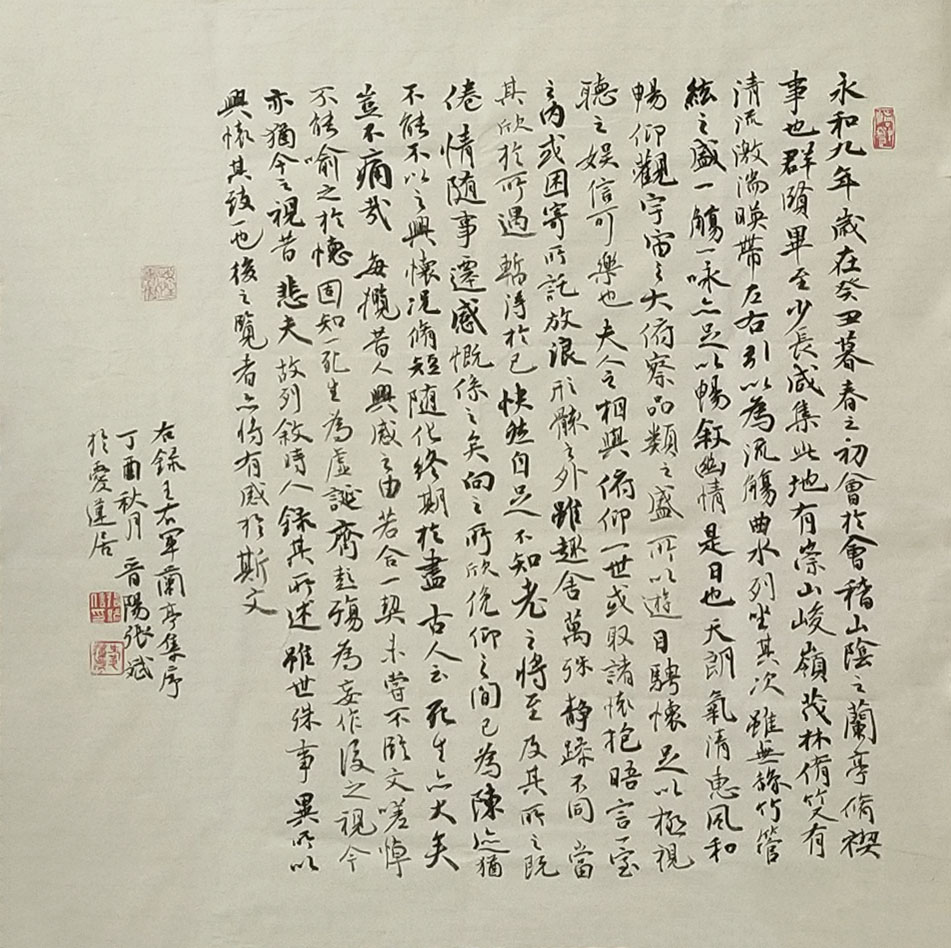 永和九年歲在癸丑暮春之初會於會稽山陰之蘭亭脩禊
事也群賢畢至少長咸集此地有崇山峻嶺茂林脩竹又有
清流激湍暎帶左右引以為流觴曲水列坐其次雖無絲竹管
絃之盛一觴一咏亦足以暢敘幽情是日也天朗氣清惠風和
暢仰觀宇宙之大俯察品類之盛所以遊目騁懷足以極視
聽之娛信可樂也夫人之相與俯仰一世或取諸懷抱晤言一室
之內或因寄所託放浪形骸之外雖趣舍萬殊静躁不同當
其欣於所遇暫得於己快然自足不知老之將至及其所之既
倦情隨事遷感慨係之矣向之所欣俛仰之間已為陳迹猶
不能不以之興懷況脩短隨化終期於盡古人云死生亦大矣
豈不痛哉每攬昔人興感之由若合一契未嘗不臨文嗟悼
不能喻之於懷固知一死生為虛誕齊彭殤為妄作後之視今
亦猶今之視昔悲夫故列敘時人錄其所述雖世殊事異所以
興懷其致一也後之覽者亦將有感於斯文
右錄王右軍蘭亭集序
丁酉秋月晋陽張斌
於愛蓮居